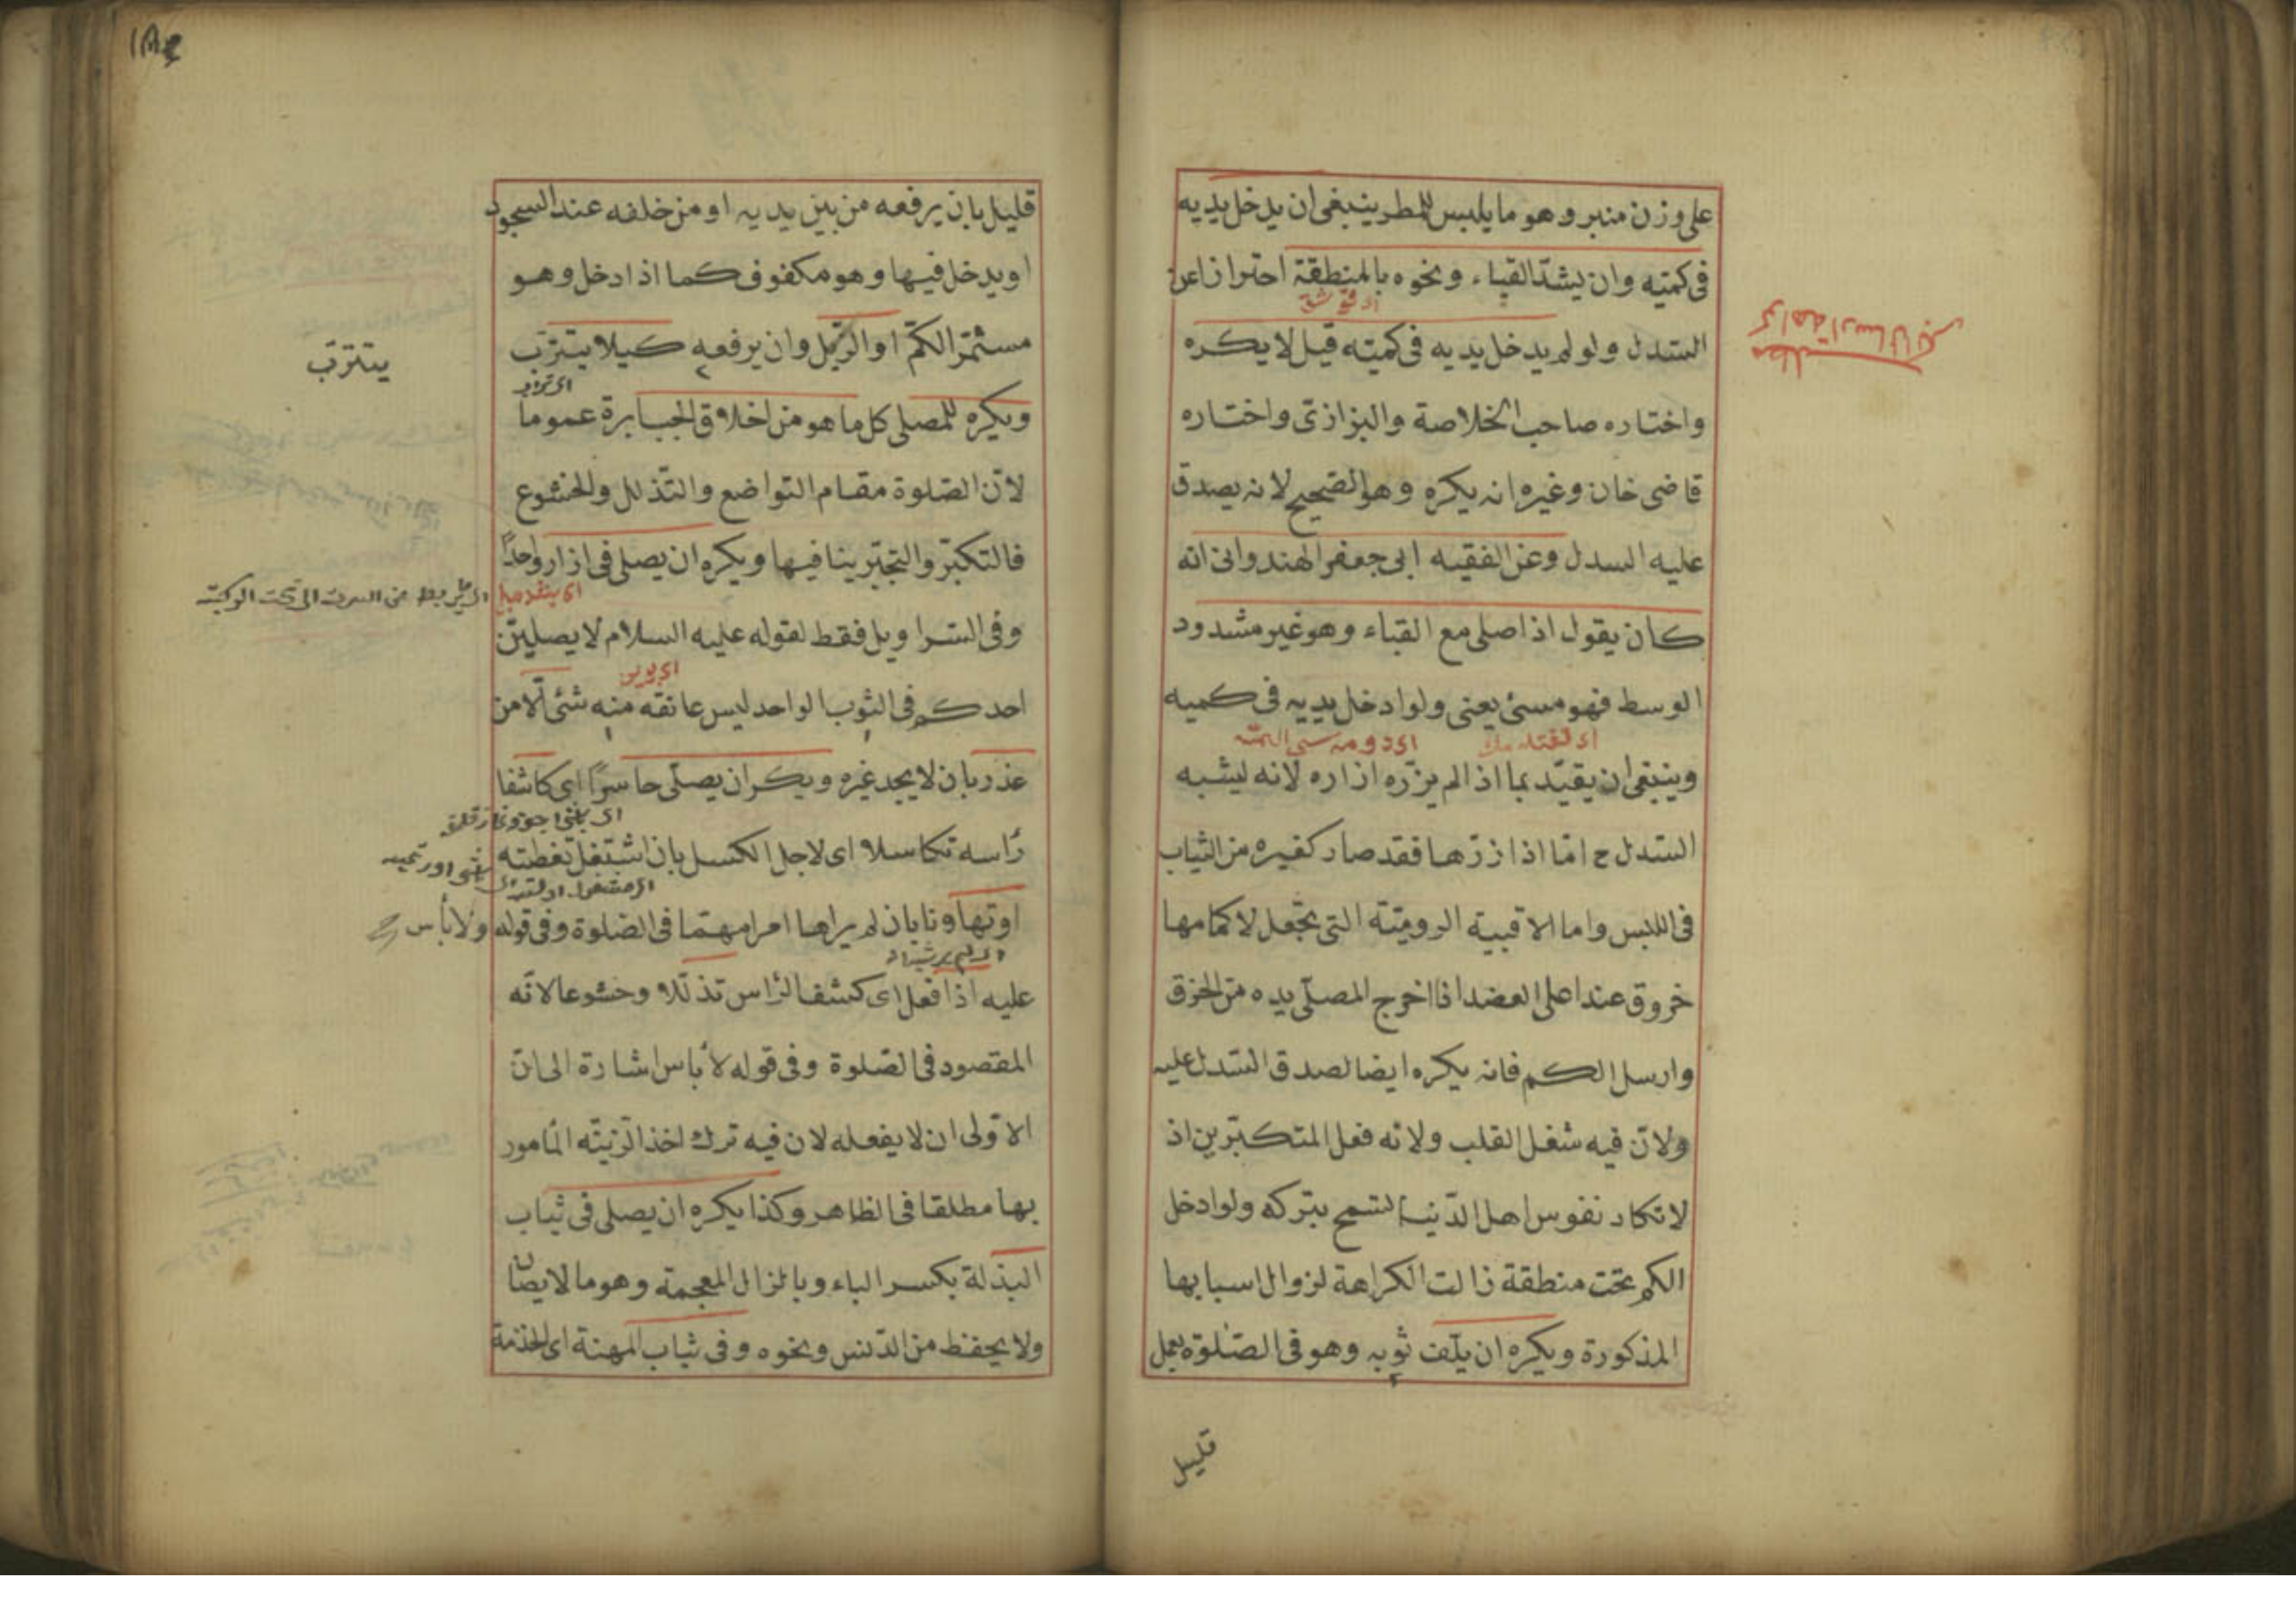 على وزن منبر وهو ما يلبس للمطر ينبغى ان يدخل يديه
فى كميه وان يشد القباء ونحوه بالمنطقة احترازا عن
السدل ولو لم يدخل يديه فى كميه قيل لا يكره
واختاره صاحب الخلاصة والبزازى واختاره
قاضى خان وغيره انه يكره وهو الصحيح لانه يصدق
عليه السدل وعن الفقيه ابى جعفر الهندوانى انه
كان يقول اذا صلى مع القباء وهو غير مشدود
الوسط فهو مسئ يعنى ولو ادخل يديه فى كميه
وينبغى ان يقيد بما اذا لم يزره ازاره لانه ليشبه
السدل ح اما اذا ازرها فقد صار كغيره من الثياب
فى اللبس واما الاقبية الرومية التى تجعل لاكمامها
خروق عند اعلى العضد اذا اخرج المصلى يده من الخرق
وارسل الكم فانه يكره ايضا لصدق السدل عليه
ولان فيه شغل القلب ولانه فعل المتكبرين اذ
لا تكاد نفوس اهل الدنيا لتسمح بتركه ولو ادخل
الكم تحت منطقة زالت الكراهة لزوال اسبابها
المذكورة ويكره ان يلف ثوبه وهو فى الصلوة بعمل
قليل
قليل بان يرفعه من بين يديه او من خلفه عند السجود
او يدخل فيها وهو مكفوف كما اذا دخل وهو
مستمر الكم او الذيل وان يرفعه كيلا يتترب
يتترب
ويكره للمصلى كل ما هو من اخلاق الجبابرة عموما
لان الصلوة مقام التواضع والتذلل والخشوع
فالتكبر والتجبر ينافيها ويكره ان يصلى فى ازار واحدا
وفى السراويل فقط لقوله عليه السلام لا يصلين
احدكم فى الثوب الواحد ليس عاتقه منه شئ الا من
عذر بان لا يجد غيره ويكر ان يصلى حاسرا اى كاشفا
رأسه تكاسلا اى لاجل الكسل بان اشتغل تغطته
او تهاونا بان لم يراها امرا مهما فى الصلوة وفى قوله ولا بأس
عليه اذا فعل اى كشف الرأس تذللا وخشوعا لانه
المقصود فى الصلوة وفى قوله لا بأس اشارة الى ان
الاولى ان لا يفعله لان فيه ترك اخذ الزينة المأمور
بها مطلقا فى الظاهر وكذا يكره ان يصلى فى ثياب
البذلة بكسر الباء وبالزال المعجمة وهو ما لا يصان
ولا يحفظ من الدنس ونحوه وفى ثياب المهنة اى الخذمة